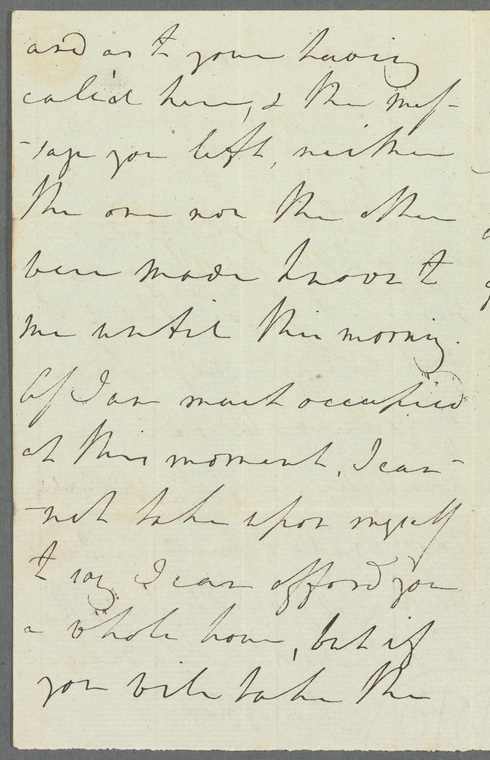 and as to your having
called here, & the mes-
-sage you left, neither
the one nor the other
been made known to
me until this morning.
As I am much occupied
at this moment, I can-
-not take upon myself
to say I can afford you
a whole hour, but if
you will take the